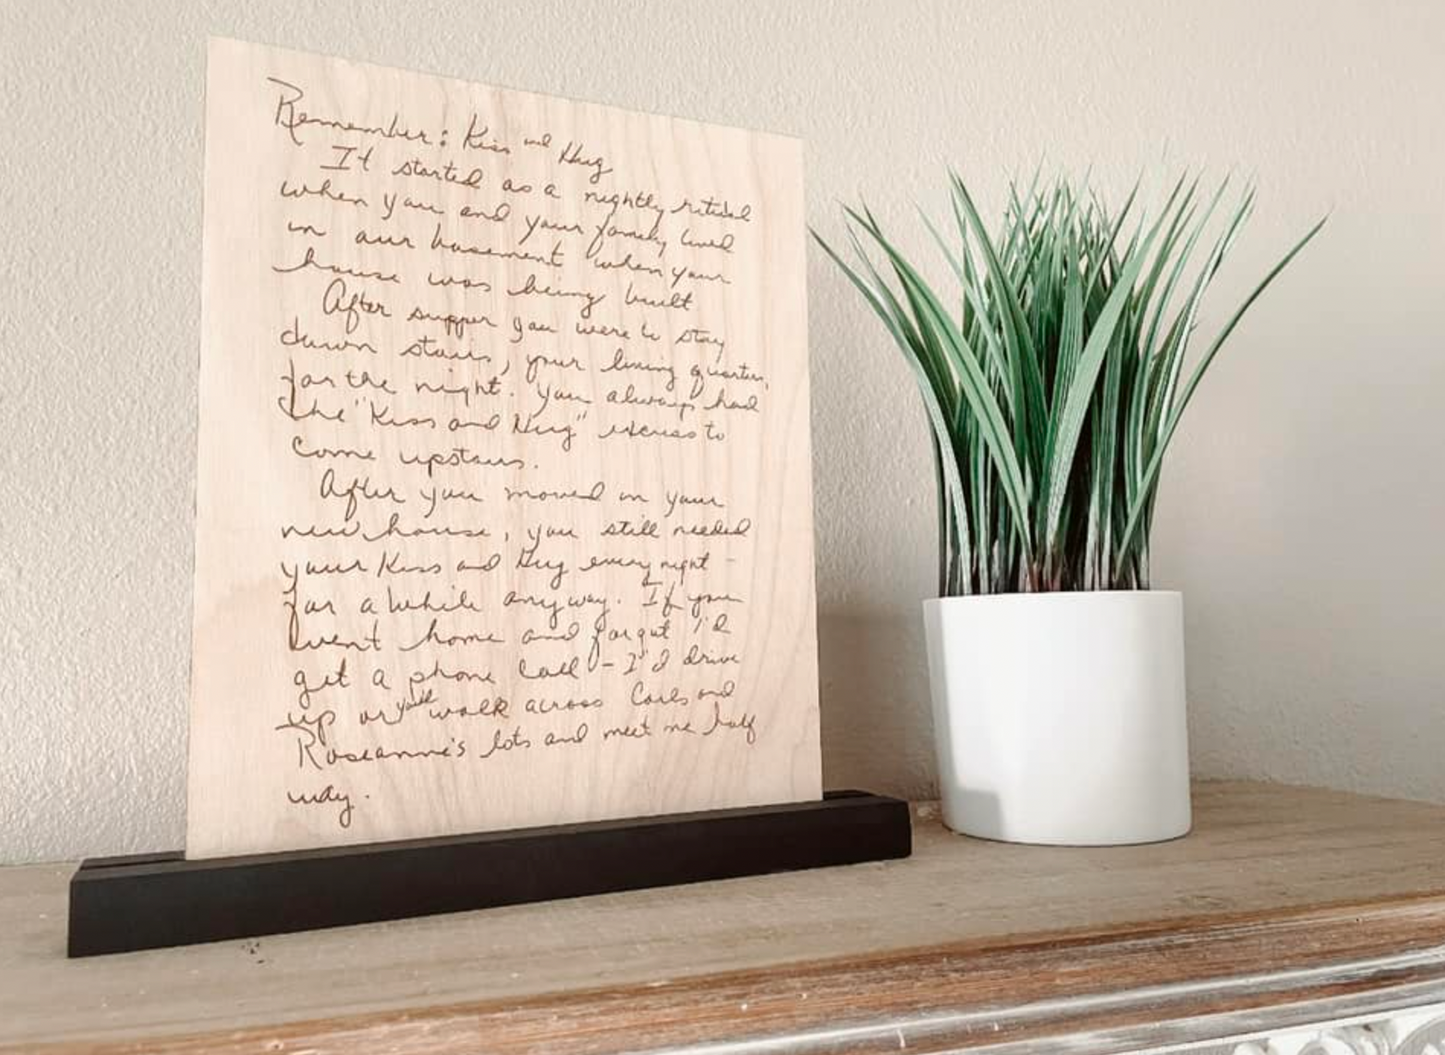 Remember: Kiss and Hug
It started as a nightly ritual
when you and your family lived
in our basement when your
house was being built
After supper you were to stay
down stairs, your living quarters,
for the night. You always had
the "Kiss and Hug" excuse to
come upstairs.
After you moved in your
new house, you still needed
your Kiss and Hug every night -
for a while anyway. If you
went home and forgot I'd
get a phone call - I'd drive
up or you'll walk across Carls and
Roseanne's lots and meet me half
way.